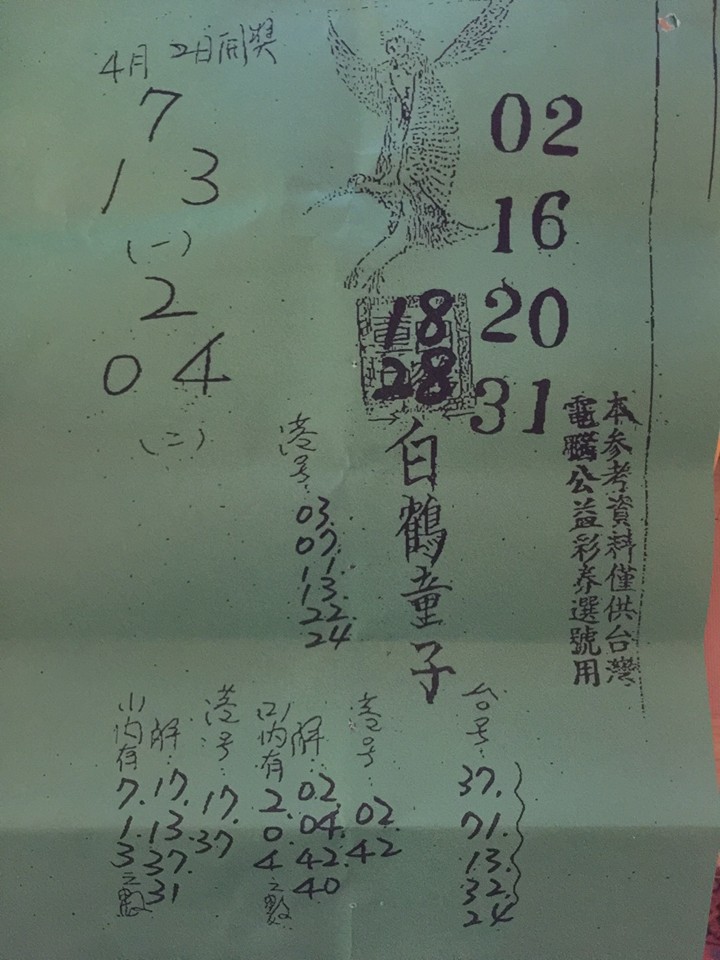 4月 2日開獎
7
1 3
(一)
2
0 4
(二)
02
16
20
31
18
28
白鶴童子
本參考資料僅供台灣
電腦公益彩券選號用
港号:
03.
07.
11.
13.
22.
24
台号:
37.
71.
13.
32.
24
港号:
02.
42
解:
02.
04.
42.
40
(2)内有
2.
0.
4
之數
港号:
17.
37
解:
17.
13.
37.
31
(1)内有
7.
1.
3
之數